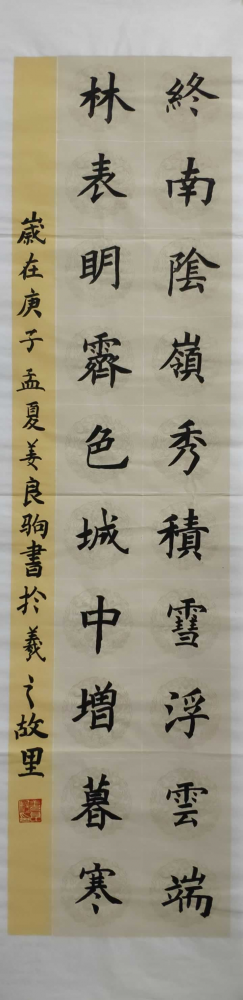 終南陰嶺秀積䨮浮雲端
林表眀霽色城中增暮寒
歲在庚子孟夏姜良駒書於羲之故里